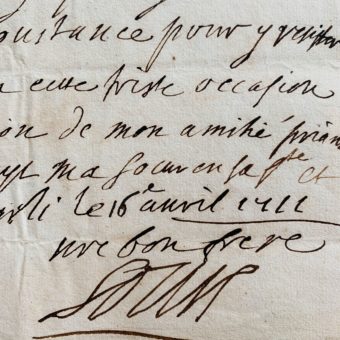 constance pour y resister
cette triste occasion
ion de mon amitié priant
ma soeur en sa ste et
arli le 16e avril 1711
vre bon frere
Louis